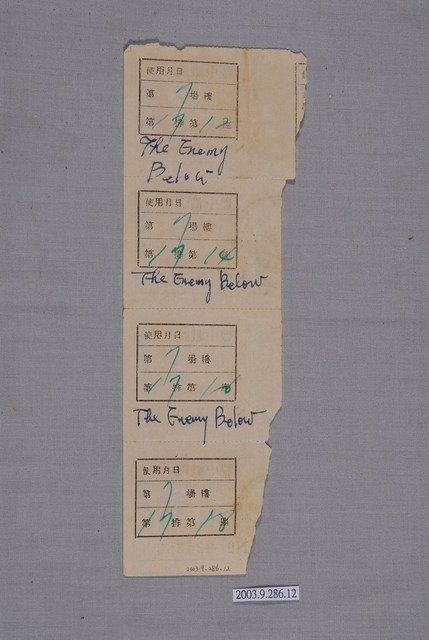 使用月日
第 7 場樓
第 17 排第 12 座
The Enemy
Below
使用月日
第 7 場樓
第 17 排第 14 座
The Enemy Below
使用月日
第 7 場樓
第 17 排第 16 座
The Enemy Below
使用月日
第 7 場樓
第 17 排第 18 座
2003.9.286.12
2003.9.286.12